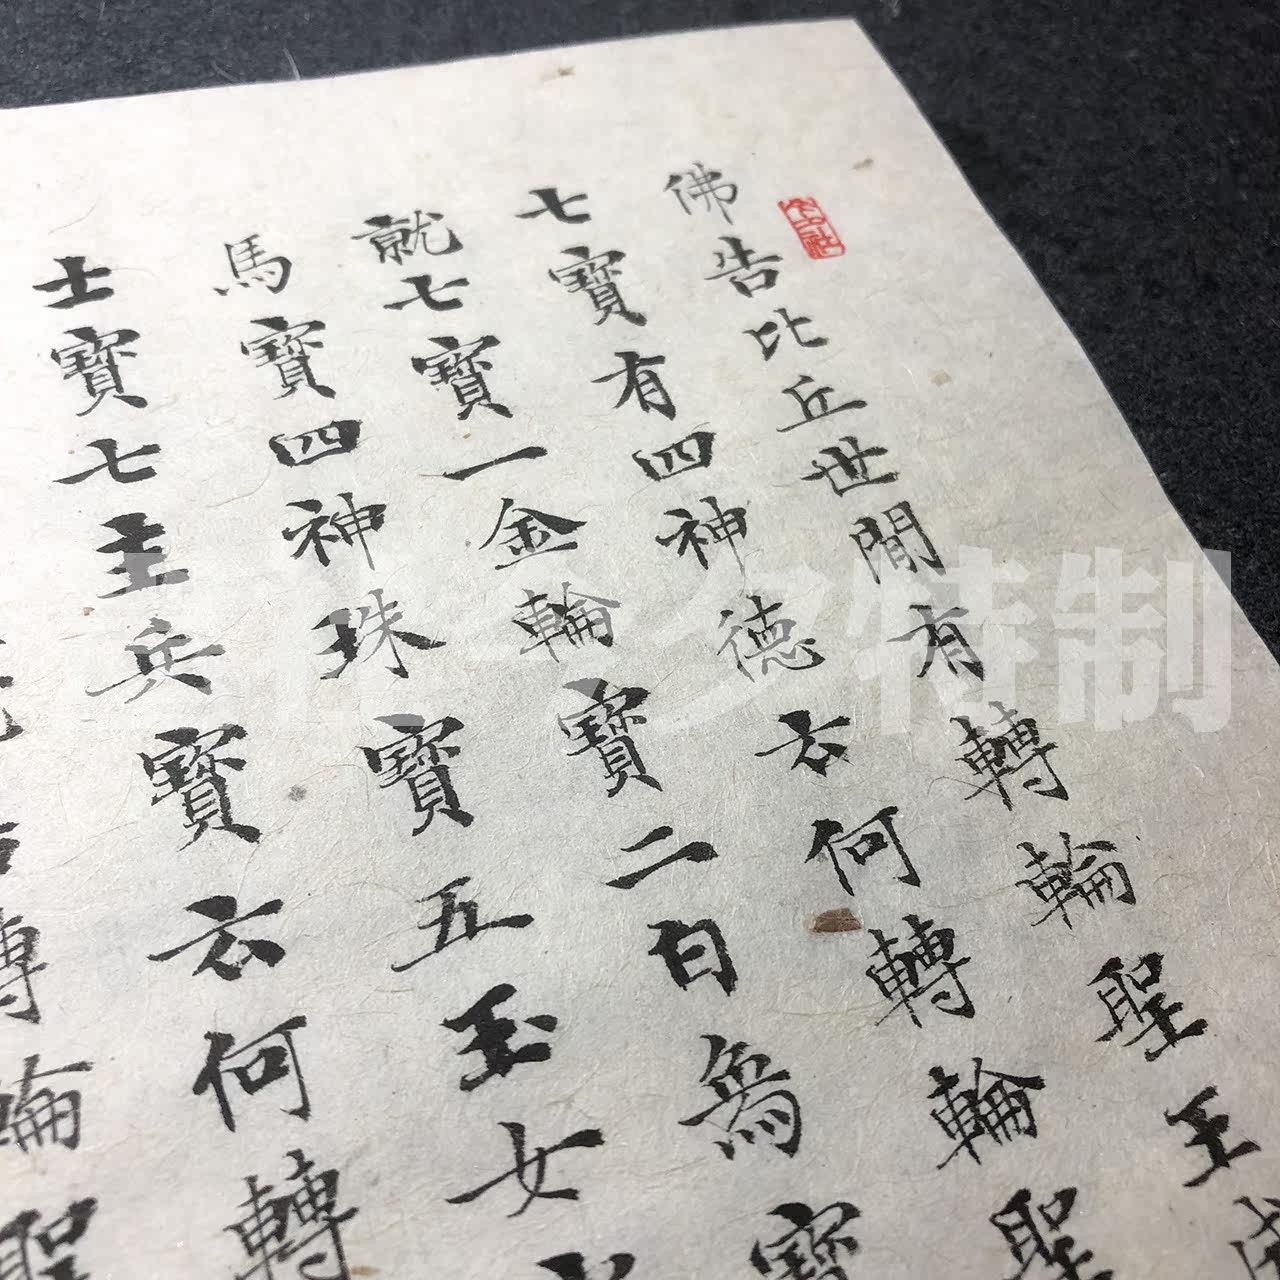 佛告比丘世閒有轉輪聖王
七寶有四神德云何轉輪聖
就七寶一金輪寶二白象寶
馬寶四神珠寶五玉女
士寶七主兵寶云何轉
轉輪聖
特制